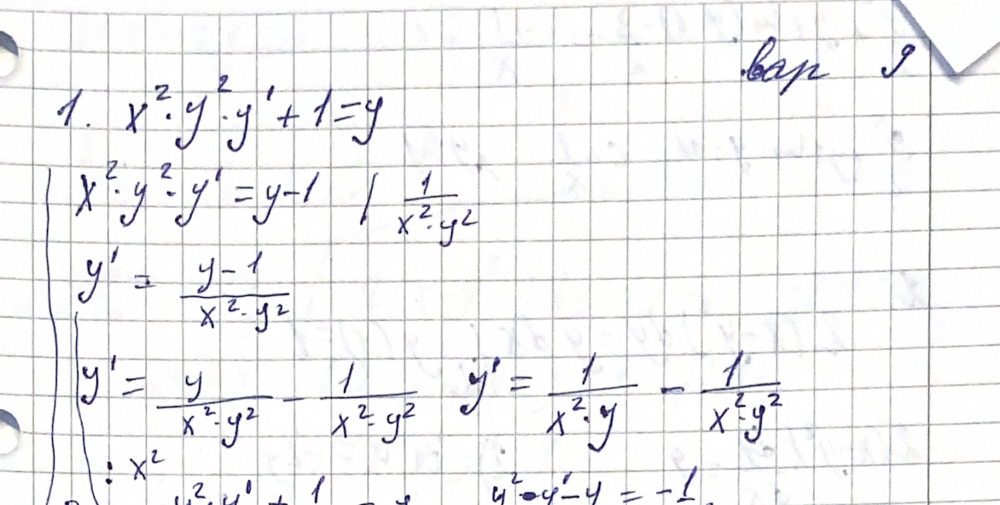 вар 9
1. x²·y²·y' + 1 = y
x²·y²·y' = y-1 | 1/(x²·y²)
y' = (y-1)/(x²·y²)
y' = y/(x²·y²) - 1/(x²·y²) y' = 1/(x²·y) - 1/(x²·y²)
: x²